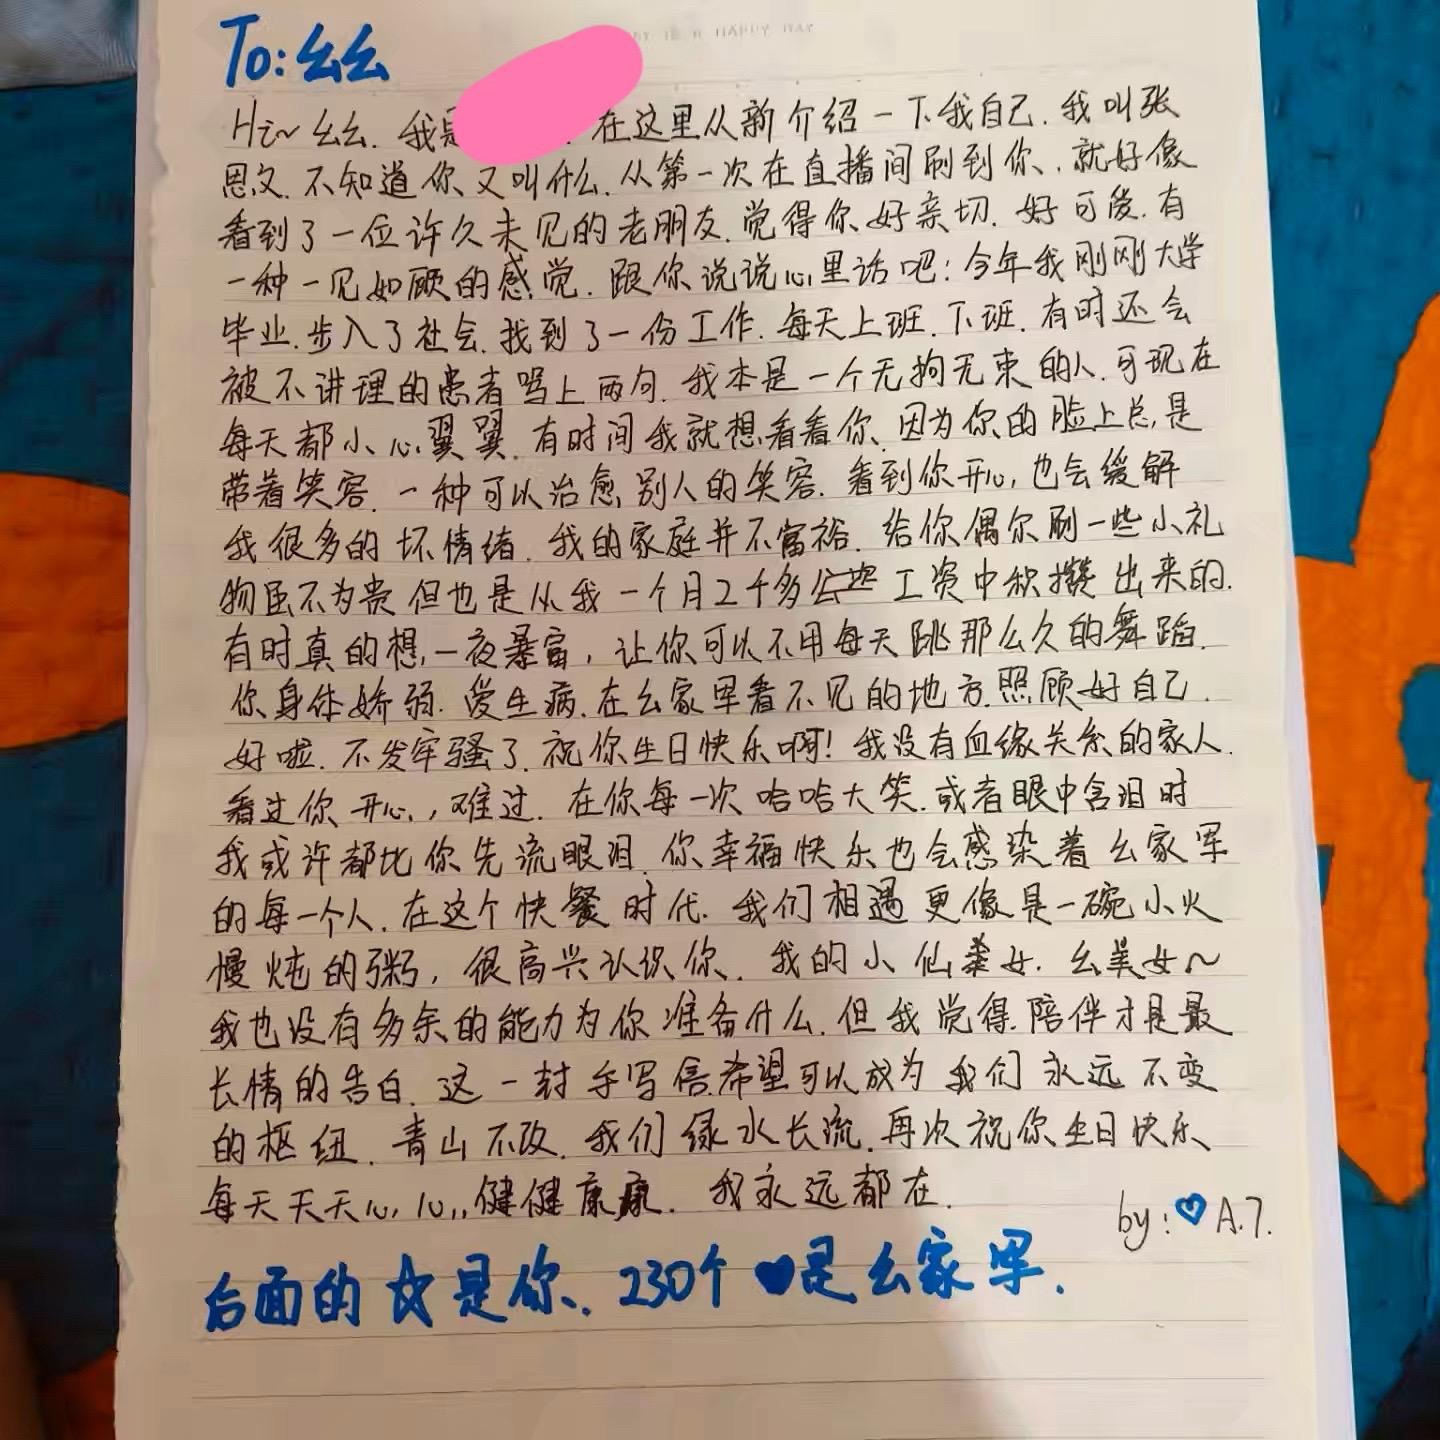 To:幺幺
Hi~幺幺.我是 在这里从新介绍一下我自己.我叫张
思文.不知道你又叫什么.从第一次在直播间刷到你.就好像
看到了一位许久未见的老朋友.觉得你好亲切.好可爱.有
一种一见如顾的感觉.跟你说说心里话吧:今年我刚刚大学
毕业.步入了社会.找到了一份工作.每天上班.下班.有时还会
被不讲理的患者骂上两句.我本是一个无拘无束的人.可现在
每天都小心翼翼.有时间我就想看看你.因为你的脸上总是
带着笑容.一种可以治愈别人的笑容.看到你开心,也会缓解
我很多的坏情绪.我的家庭并不富裕.给你偶尔刷一些小礼
物虽不为贵但也是从我一个月2千多 工资中积攒出来的.
有时真的想,一夜暴富,让你可以不用每天跳那么久的舞蹈.
你身体娇弱.爱生病.在幺家军看不见的地方.照顾好自己.
好啦.不发牢骚了.祝你生日快乐啊!我没有血缘关系的家人.
看过你开心,难过.在你每一次哈哈大笑.或者眼中含泪时
我或许都比你先流眼泪.你幸福快乐也会感染着幺家军
的每一个人.在这个快餐时代.我们相遇更像是一碗小火
慢炖的粥,很高兴认识你.我的小仙美女.幺美女~
我也没有多余的能力为你准备什么.但我觉得.陪伴才是最
长情的告白.这一封手写信.希望可以成为我们永远不变
的枢纽.青山不改.我们绿水长流.再次祝你生日快乐
每天天天心,心,,健健康康.我永远都在.
by:♡A.7.
后面的☆是你.230个♥是幺家军.